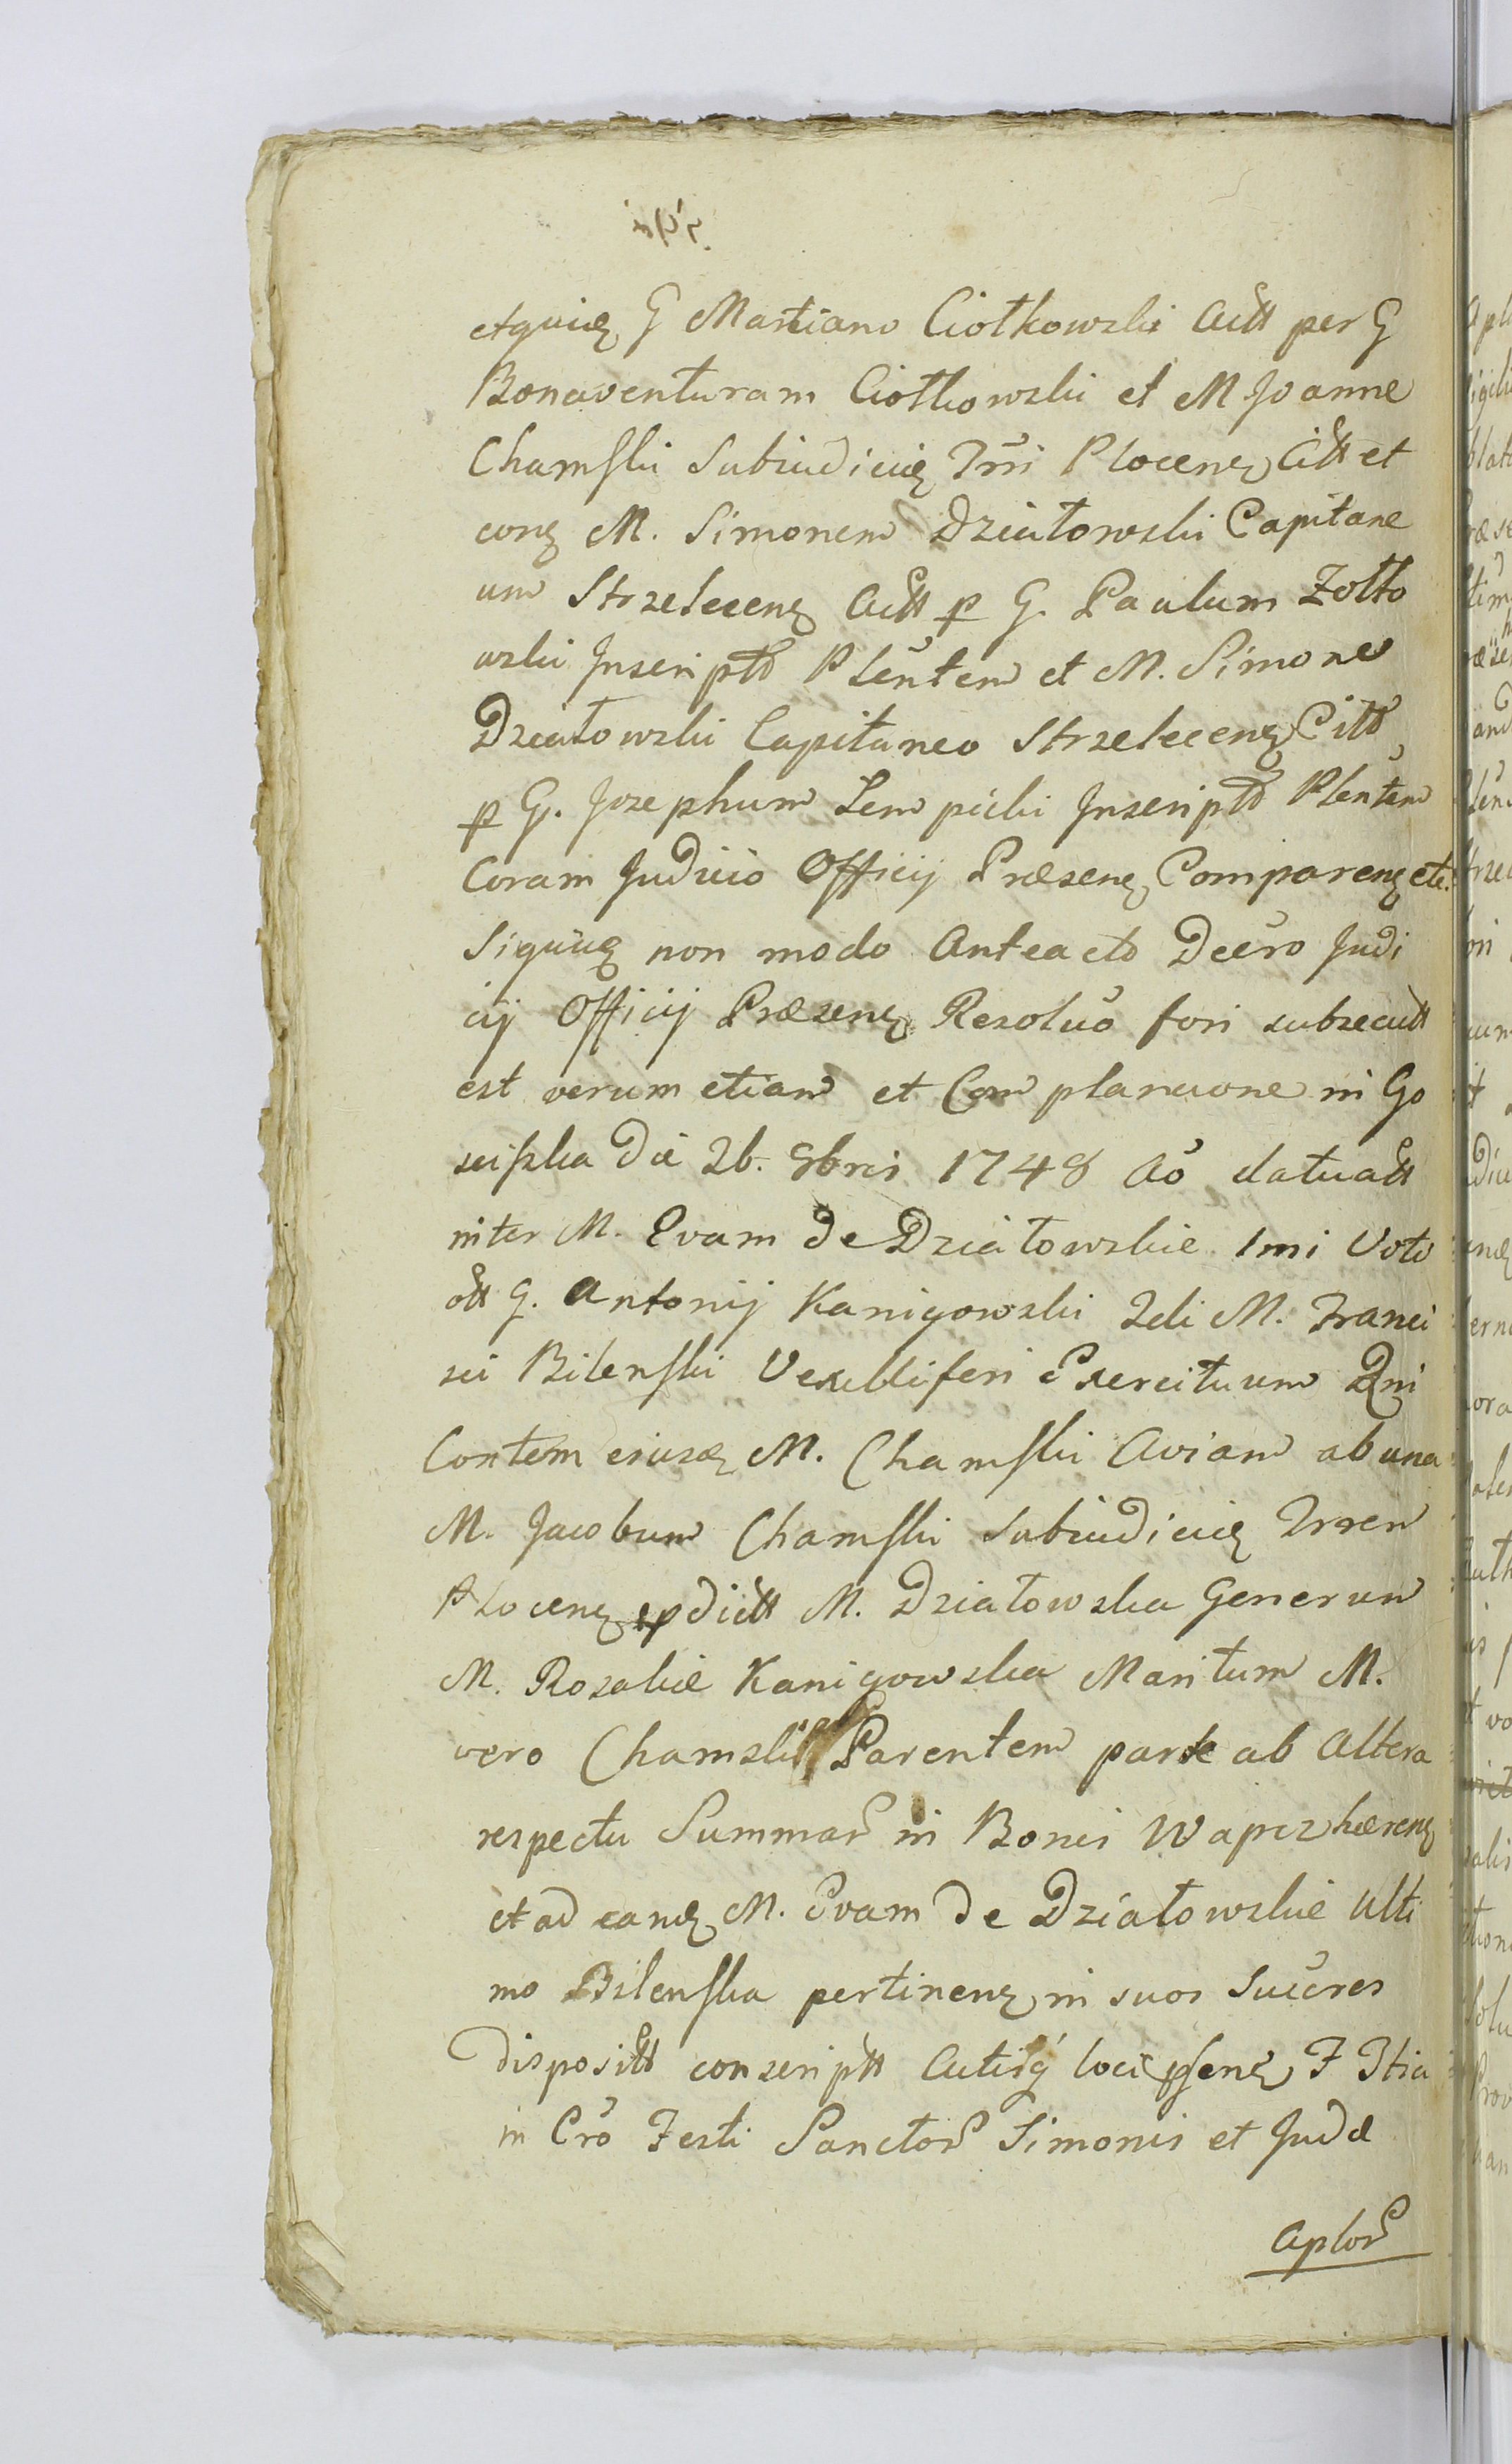 Atqueę G Martiano Ciołkowski Actt per G
Bonaventuram Ciołkowski et M Joanne
Chamski Subiudicię Trri Plocenę Citt et
conę M. Simonem Działowski Capitane
um Strzelecenę Actt p G. Paulum Zołto
wski Inscriptt Plentem et M. Simone
Działowski Capitaneo Strzelecenę Citt
p G. Josephum Lempicki Inscriptt Plentem
Coram Judicio Officij Præsenę Comparenę etc.
Siquię non modo Anteacto Decro Judi
cij Officij Præsenę Resoluo fori subsecutt
est verum etiam et Complanaone in Go
sciszka die 26. 8bris 1748 Ao datuatt
inter M. Evam de Działowskie 1mi Voto
ott G. Antonij Kanigowski 2di M. Franci
sci Bilenski Vexilliferi Exercituum Rni
Contem eiusdę M. Chamski Aviam ab una
M. Jacobum Chamski Subiudicię Trren
Plocenę pdictt M. Działowska Generum
M. Rosaliæ Kanigowska Maritum M.
vero Chamski Parentem parte ab Altera
respectu Summar in Bonis Wapiz hærenę
et ad eandę M. Evam de Działowskie Ulti
mo Bilenska pertinenę in suos Succres
Disposittt conscriptt Actisq loci psenę F Itia
in Cro Festi Sanctor Simonis et Judæ
Aplor